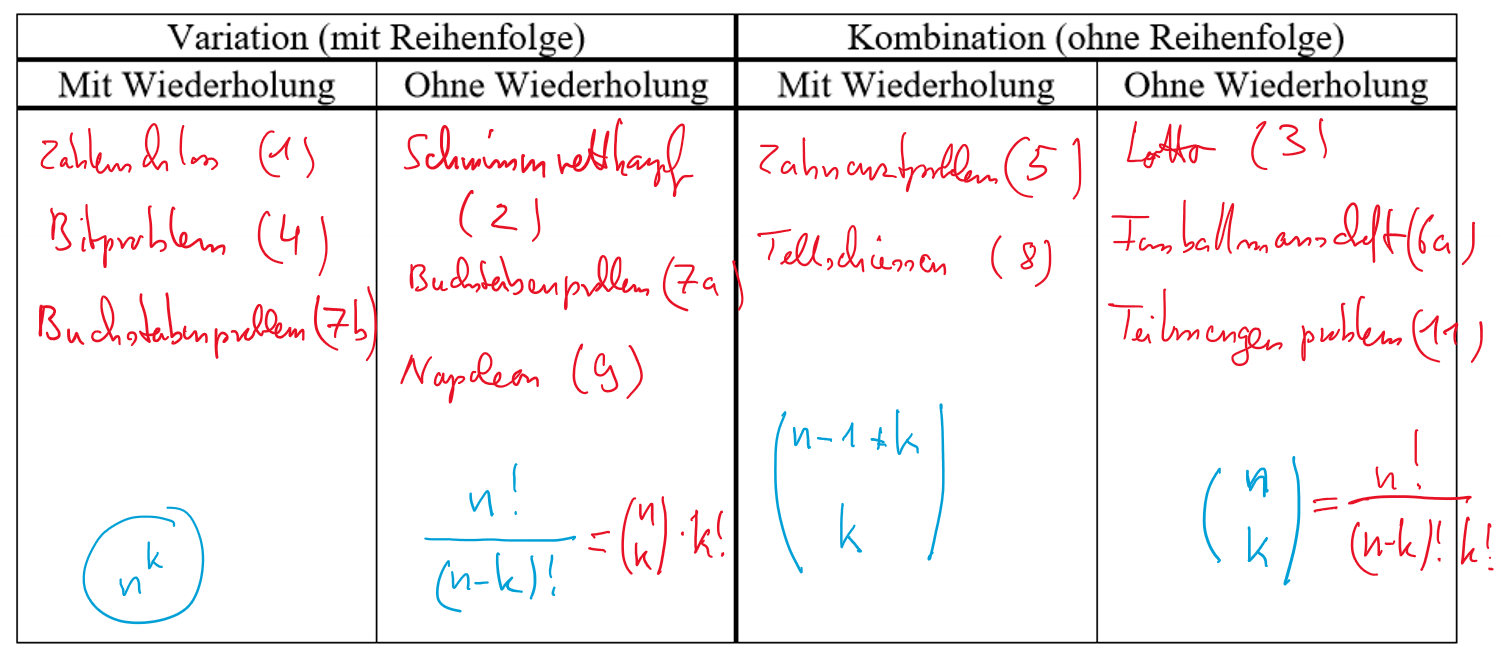 Variation (mit Reihenfolge)
Kombination (ohne Reihenfolge)
Mit Wiederholung
Ohne Wiederholung
Mit Wiederholung
Ohne Wiederholung
Zahlenschloss (1)
Bitproblem (4)
Buchstabenproblem (7b)
n^k
Schwimmwettkampf
(2)
Buchstabenproblem (7a)
Napoleon (9)
n! / (n-k)! = (n k) · k!
Zahnarztproblem (5)
Tellschiessen (8)
(n-1+k k)
Lotto (3)
Fussballmannschaft (6a)
Teilmengenproblem (11)
(n k) = n! / (n-k)! k!